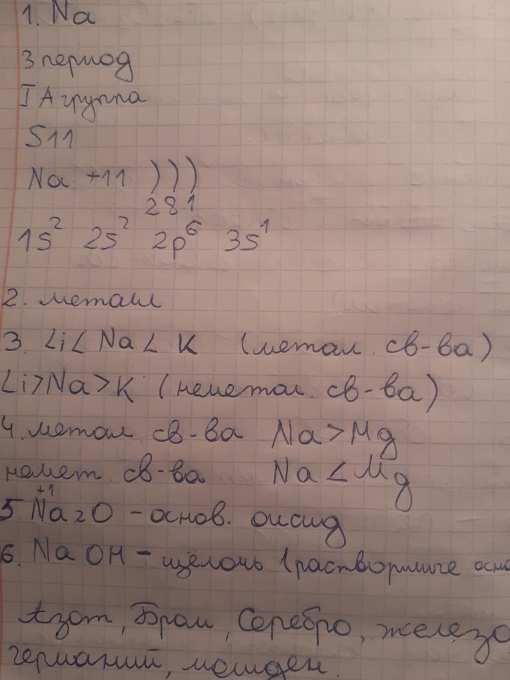 1. Na
3 период
I A группа
S11
Na +11 )))
2 8 1
1s² 2s² 2p⁶ 3s¹
2. металл
3. Li < Na < K (метал. св-ва)
Li > Na > K (неметал. св-ва)
4. метал. св-ва Na > Mg
немет. св-ва Na < Mg
+1
5 Na2O - основ. оксид
6. NaOH - щёлочь (растворимые осно
Азот, Бром, Серебро, железо
германий, молибден.